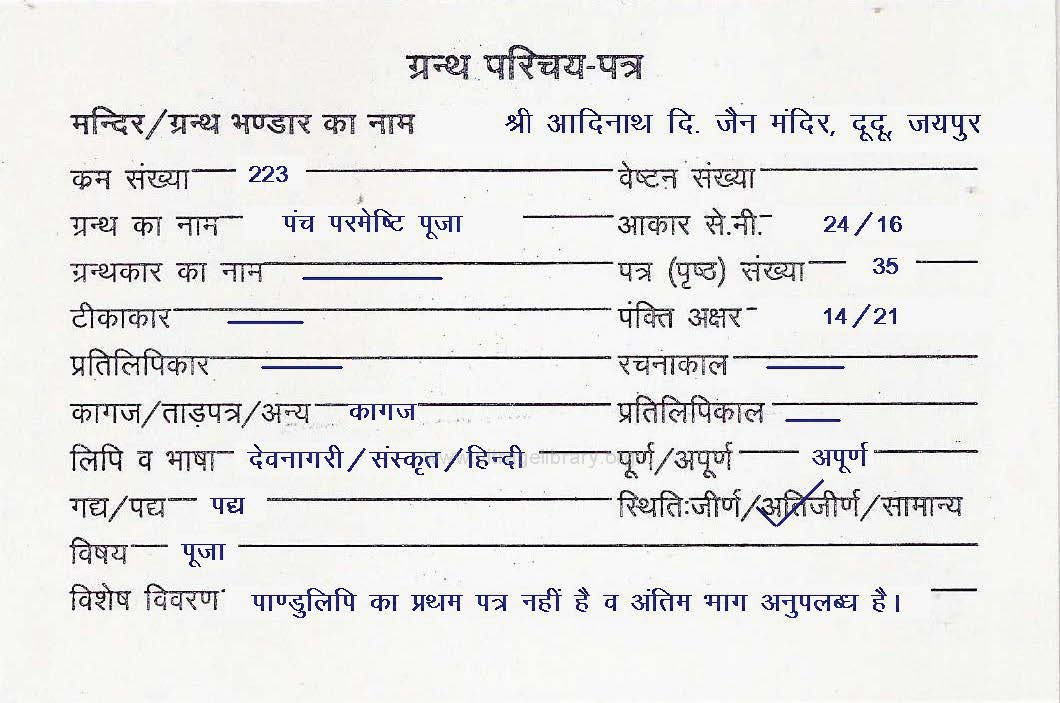 ग्रन्थ परिचय-पत्र
मन्दिर/ग्रन्थ भण्डार का नाम श्री आदिनाथ दि. जैन मंदिर, दूदू, जयपुर
कम संख्या 223 वेष्टन संख्या
ग्रन्थ का नाम पंच परमेष्टि पूजा आकार से.मी. 24/16
ग्रन्थकार का नाम पत्र (पृष्ठ) संख्या 35
टीकाकार पंक्ति अक्षर 14/21
प्रतिलिपिकार रचनाकाल
कागज/ताड़पत्र/अन्य कागज प्रतिलिपिकाल
लिपि व भाषा देवनागरी/संस्कृत/हिन्दी पूर्ण/अपूर्ण अपूर्ण
गद्य/पद्य पद्य स्थितिःजीर्ण/अतिजीर्ण/सामान्य
विषय पूजा
विशेष विवरण पाण्डुलिपि का प्रथम पत्र नहीं है व अंतिम भाग अनुपलब्ध है।